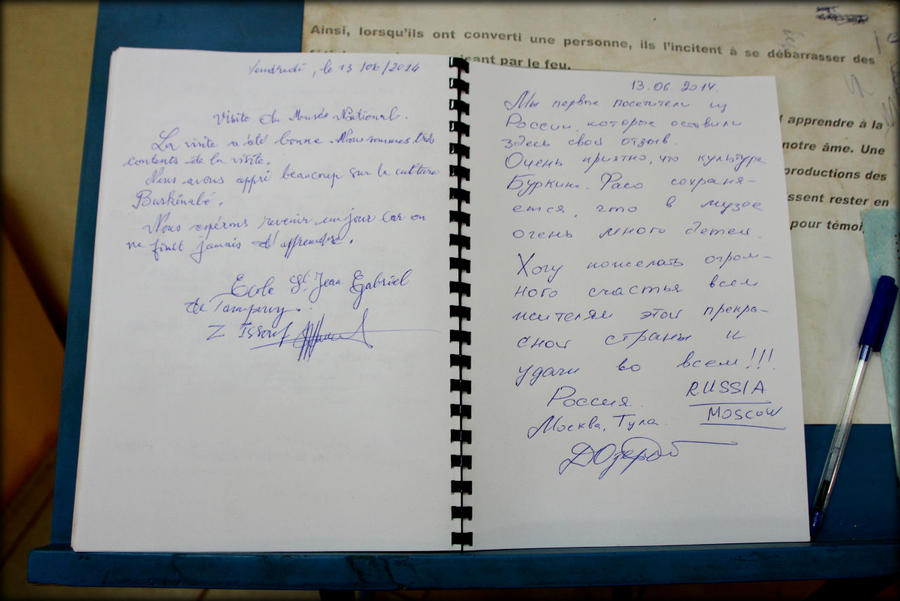 Ainsi, lorsqu'ils ont converti une personne, ils l'incitent à se débarrasser des
par le feu.
apprendre à la
notre âme. Une
productions des
ssent rester en
pour témoi
Vendredi, le 13/06/2014
Visite du Musée National.
La visite a été bonne Nous sommes très
contents de la visite.
Nous avons appri beaucoup sur la culture
Burkinabé.
Nous espérons revenir un jour car on
ne finit jamais d'apprendre.
Ecole St Jean Gabriel
de Tampouy.
Z Issouf
13.06.2014.
Мы первые посетители из
России, которые оставили
здесь свой отзыв.
Очень приятно, что культура
Буркина-Фасо сохраня-
ется, что в музее
очень много детей.
Хочу пожелать огром-
ного счастья всем
жителям этой прекра-
сной страны и
удачи во всем!!!
Россия. RUSSIA
Москва, Тула. MOSCOW